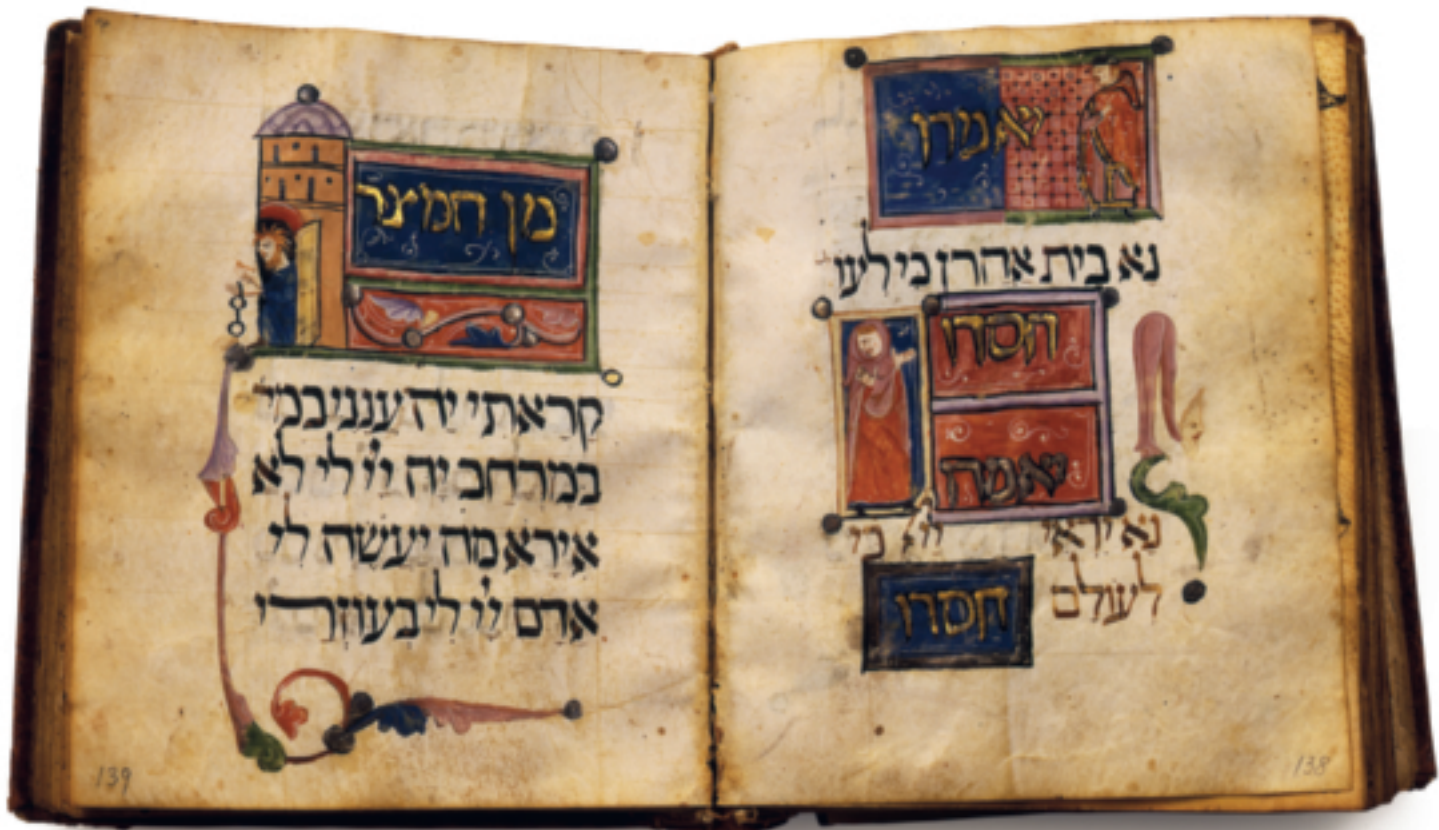 יאמרו
נא בית אהרן כי לעו
חסדו
יאמרו
נא יראי יי כי
לעולם חסדו
138
מן המצר
קראתי יה ענני במר
במרחב יה יי לי לא
אירא מה יעשה לי
אדם יי לי בעוזרי
139